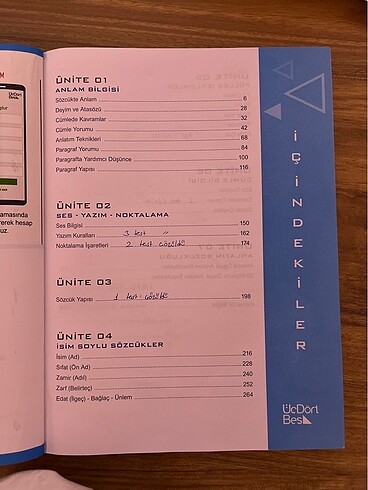 ÜNİTE 01
ANLAM BİLGİSİ
Sözcükte Anlam 6
Deyim ve Atasözü 28
Cümlede Kavramlar 32
Cümle Yorumu 42
Anlatım Teknikleri 68
Paragraf Yorumu 84
Paragrafta Yardımcı Düşünce 100
Paragraf Yapısı 116
ÜNİTE 02
SES - YAZIM - NOKTALAMA
Ses Bilgisi 150
Yazım Kuralları 3 test " 162
Noktalama İşaretleri 2 test çözüldü 174
ÜNİTE 03
Sözcük Yapısı 1 test çözüldü 198
ÜNİTE 04
İSİM SOYLU SÖZCÜKLER
İsim (Ad) 216
Sıfat (Ön Ad) 228
Zamir (Adıl) 240
Zarf (Belirteç) 252
Edat (İlgeç) - Bağlaç - Ünlem 264
İÇİNDEKİLER
ÜçDört
Beş
amasında
ererek hesap
uz.